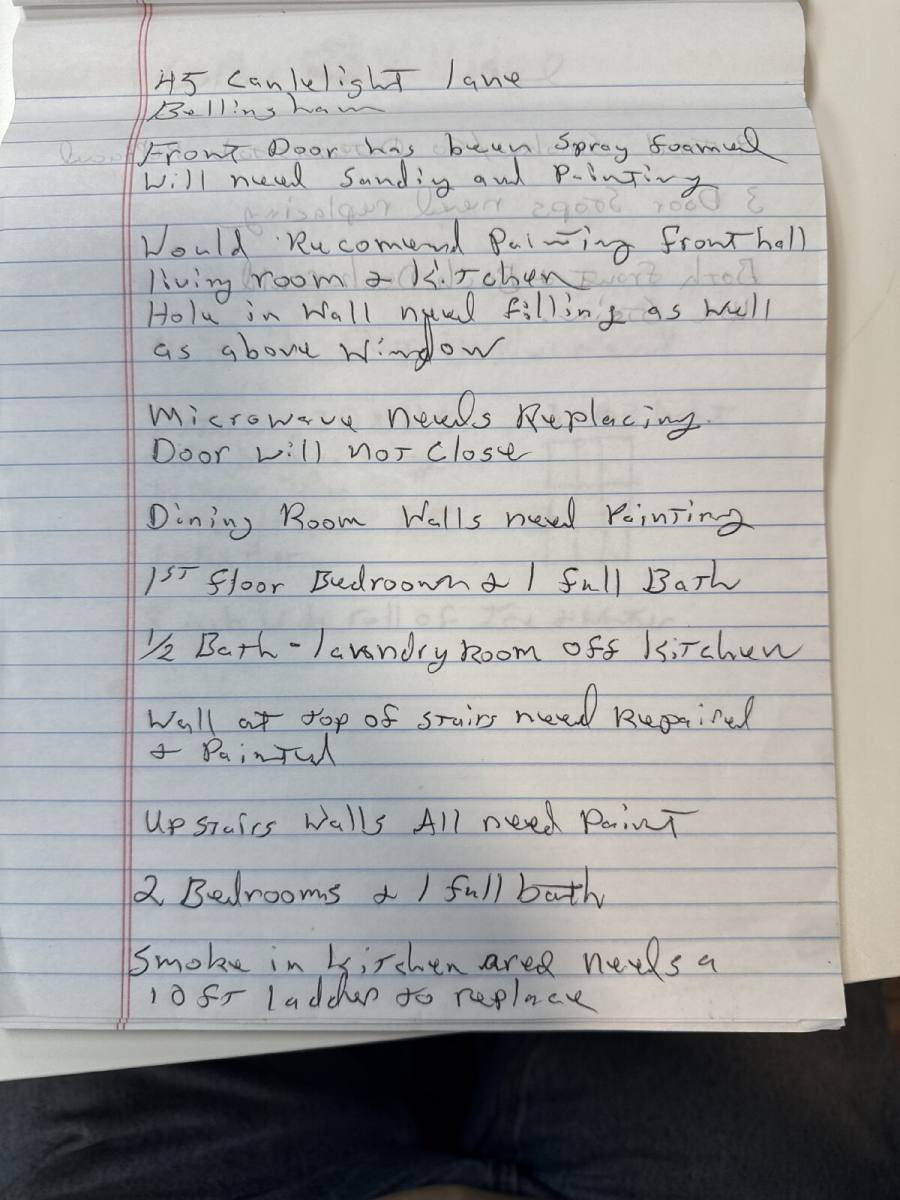 45 Canlelight lane
Bellingham
Front Door has been Spray foamed
Will need Sanding and Painting
Would Recomend Painting front hall
living room & Kitchen
Hole in Wall need filling as well
as above Window
Microwave needs Replacing
Door will not Close
Dining Room Walls need Painting
1ST floor Bedroom & 1 full Bath
1/2 Bath - laundry Room off Kitchen
Wall at top of stairs need Repaired
& Painted
Upstairs Walls All need Paint
2 Bedrooms & 1 full bath
Smoke in Kitchen area needs a
10 ft ladder to replace